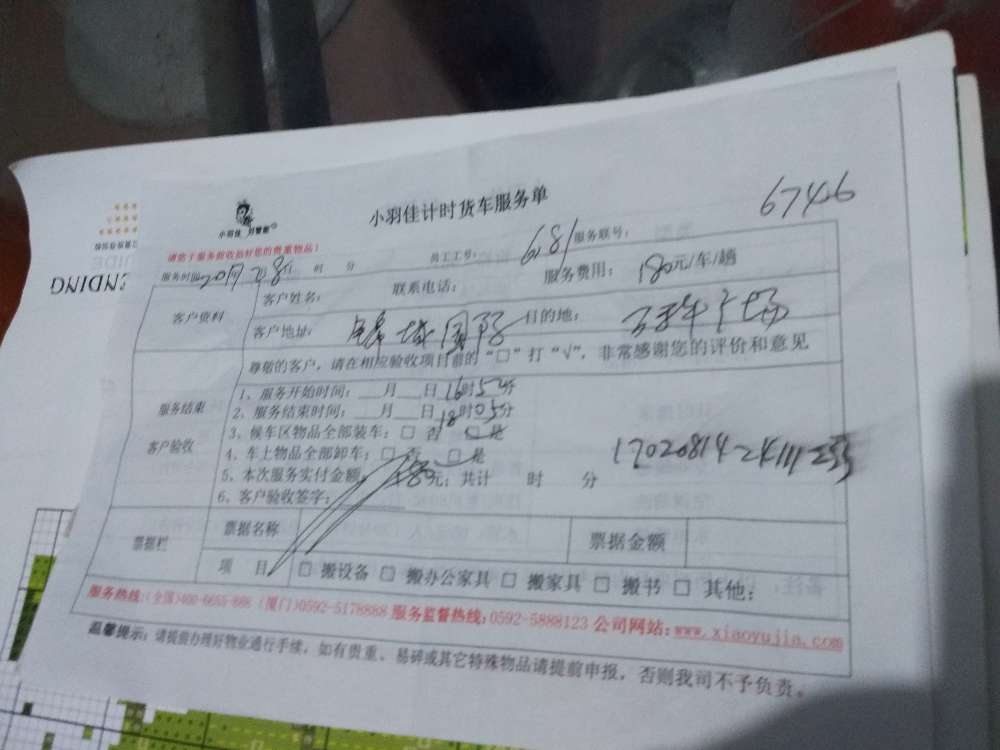 小羽佳计时货车服务单
6746
小羽佳 好管家
请您于服务前收拾好您的贵重物品!
服务时间 时 分 员工工号: 681 服务联号:
客户资料
客户姓名: 联系电话: 服务费用: 180元/车/趟
客户地址: 锦城国际 目的地: 广场
服务结束
客户验收
尊敬的客户,请在相应验收项目前的“□”打“√”,非常感谢您的评价和意见
1、服务开始时间: 月 日 16时5分
2、服务结束时间: 月 日 18时05分
3、候车区物品全部装车: □ 否 □ 是
4、车上物品全部卸车: □ 否 □ 是
5、本次服务实付金额: 180元; 共计 时 分
6、客户验收签字:
票据栏
票据名称 票据金额
项 目 □ 搬设备 □ 搬办公家具 □ 搬家具 □ 搬书 □ 其他:
服务热线:(全国)400-6655-888 (厦门)0592-5178888 服务监督热线:0592-5888123 公司网站:www.xiaoyujia.com
温馨提示: 请提前办理好物业通行手续,如有贵重、易碎或其它特殊物品请提前申报,否则我司不予负责。